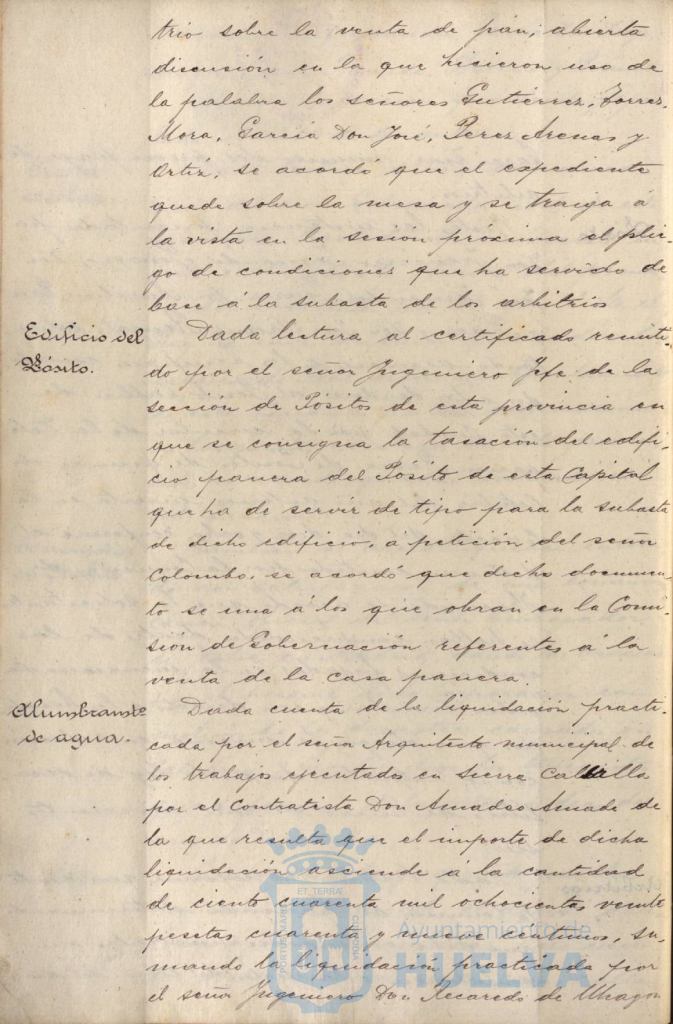 trio sobre la venta de pan, abierta
discusión en la que hicieron uso de
la palabra los señores Gutiérrez, Torres,
Mora, García Don José, Perez Arenas y
Ortiz, se acordó que el expediente
quede sobre la mesa y se traiga á
la vista en la sesión próxima el plie-
go de condiciones que ha servido de
base á la subasta de los arbitrios
Edificio del
Pósito.
Dada lectura al certificado remiti-
do por el señor Ingeniero Jefe de la
sección de Pósitos de esta provincia en
que se consigna la tasación del edifi-
cio panera del Pósito de esta Capital
que ha de servir de tipo para la subasta
de dicho edificio, a petición del señor
Colombo, se acordó que dicho documen-
to se una á los que obran en la Comi-
sión de Gobernación referentes á la
venta de la casa panera.
Alumbramto
de agua.
Dada cuenta de la liquidación practi-
cada por el señor Arquitecto municipal de
los trabajos ejecutados en Sierra
por el contratista Don Amadeo Amade de
la que resulta que el importe de dicha
liquidación asciende á la cantidad
de ciento cuarenta mil ochocientas veinte
pesetas cuarenta y nueve centimos, su-
mando la liquidación practicada por
el señor Ingeniero Don Recaredo de Uhagon
Ayuntamiento de
HUELVA